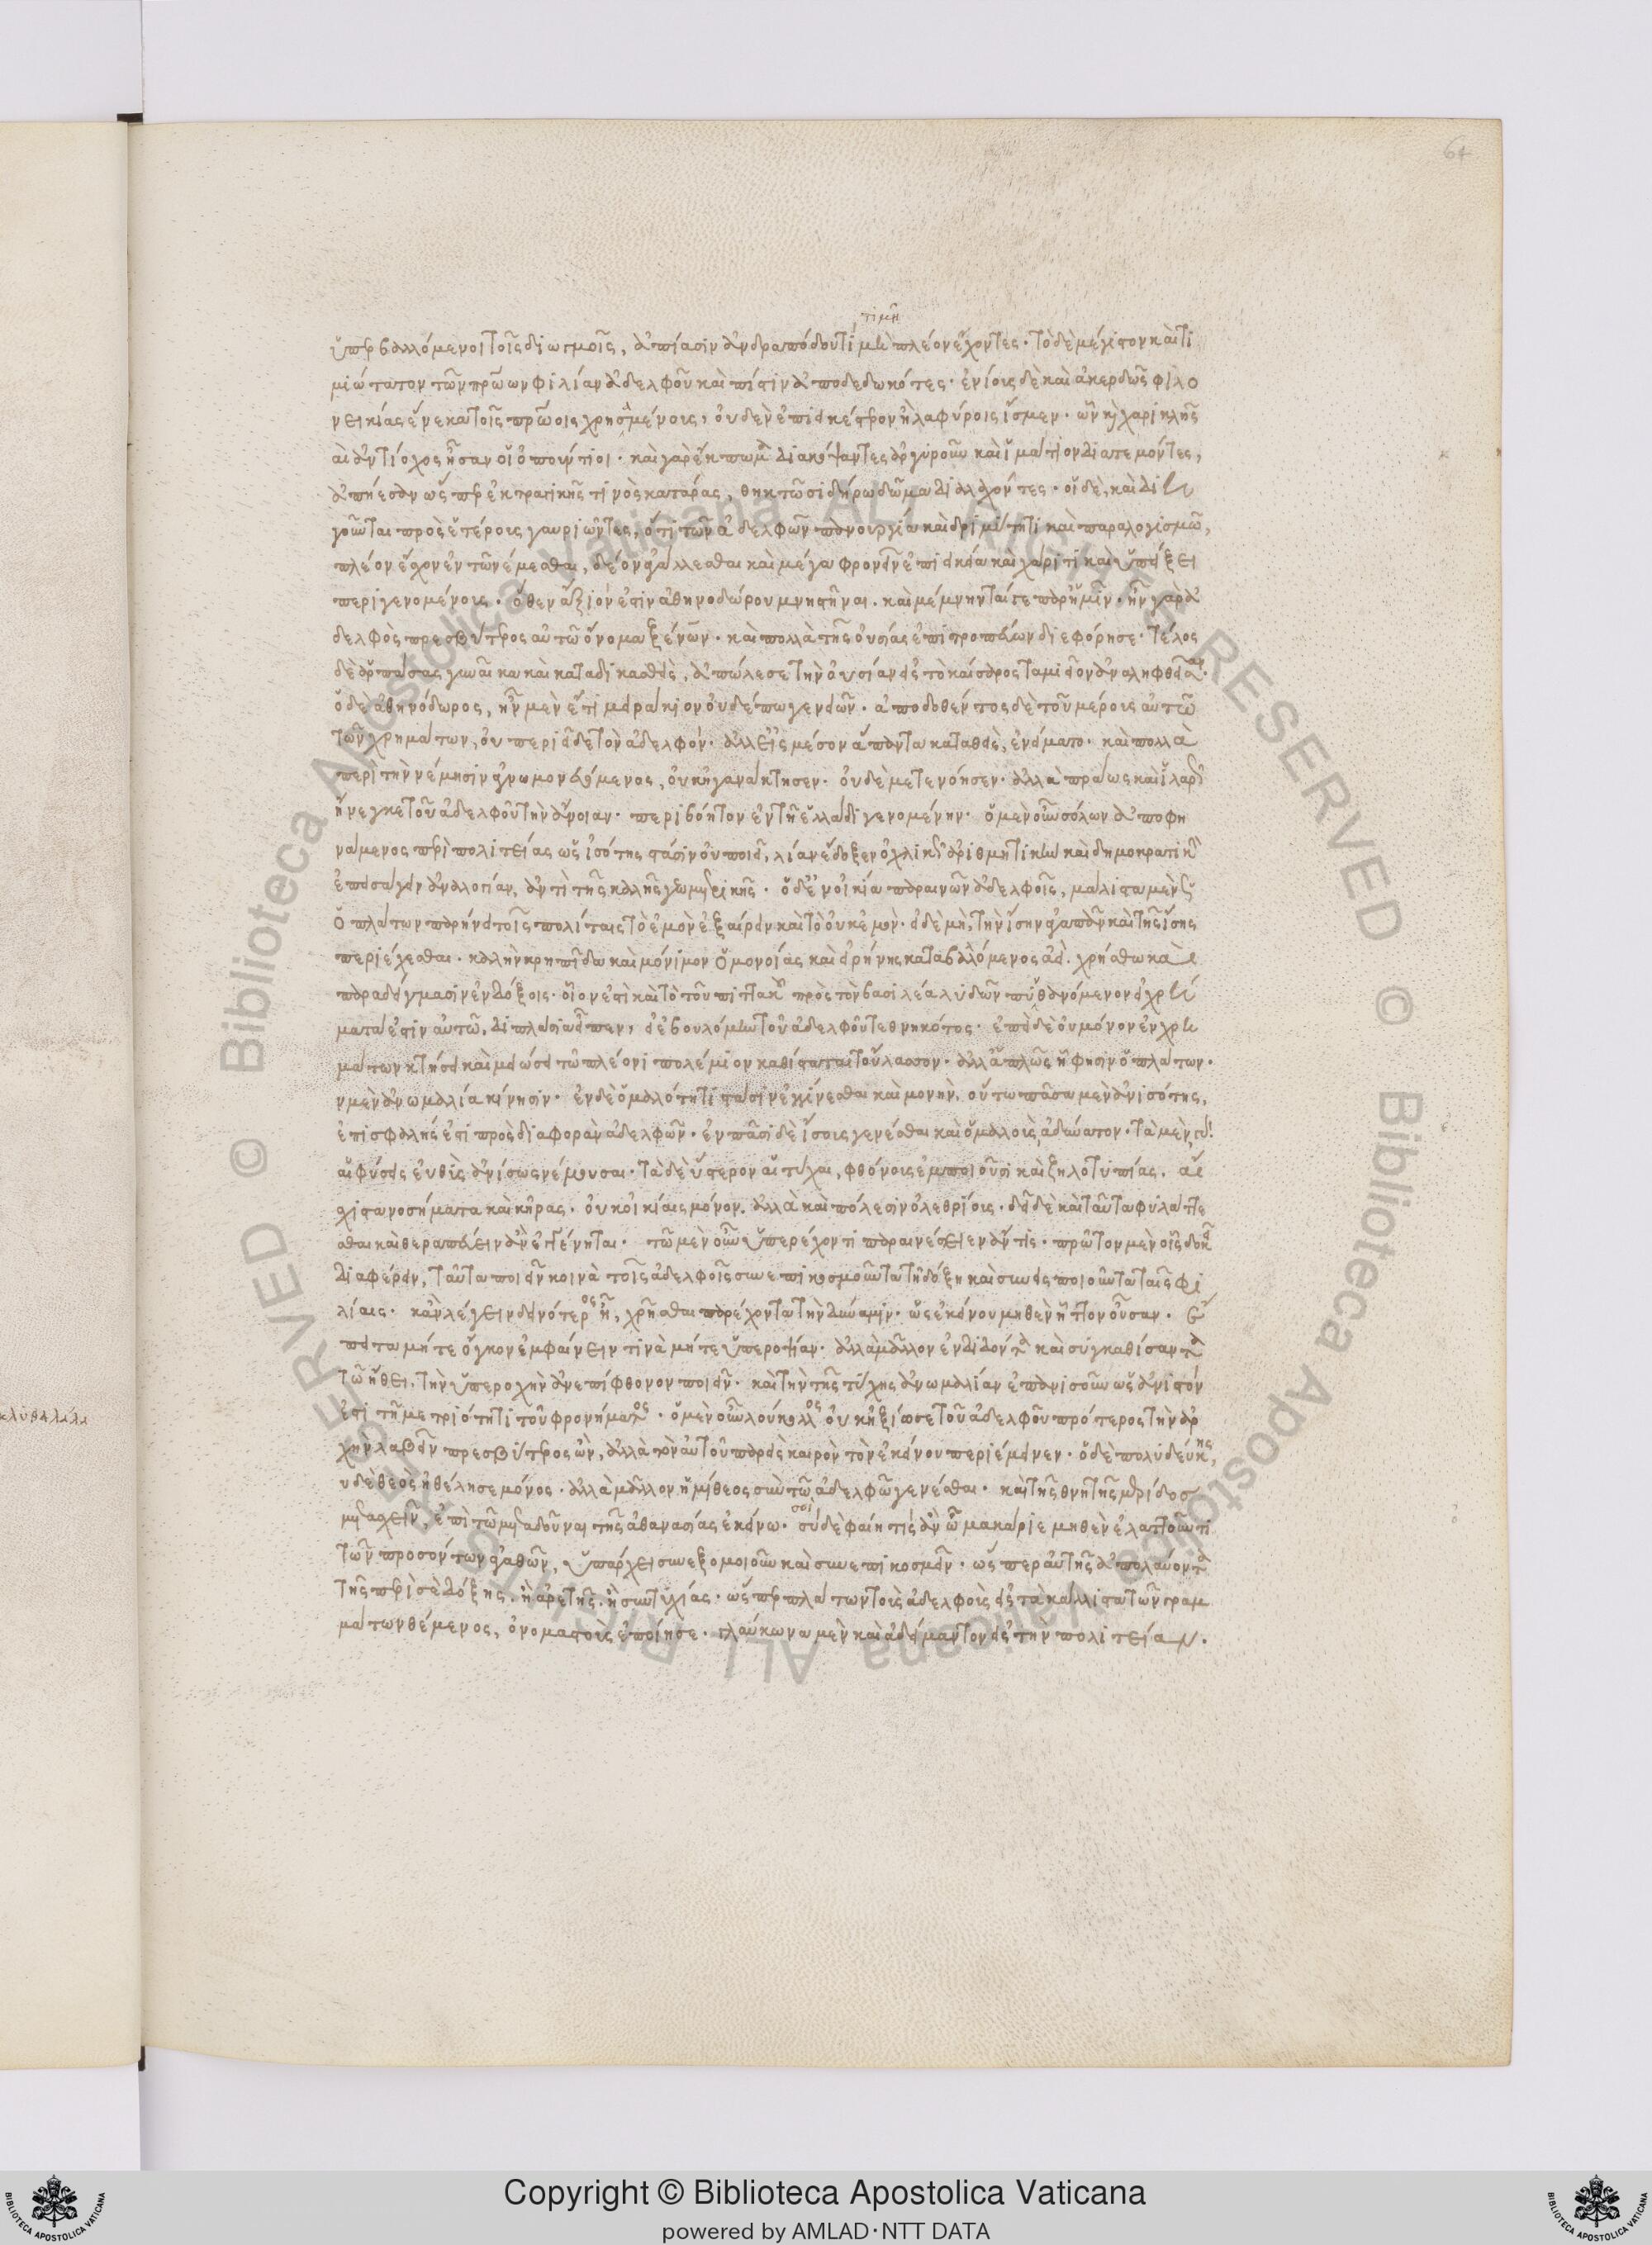 64
τιμῆ
ὑπερβαλλόμενοι τοῖς διωγμοῖς, ἀπίασιν ἀνδραπόδου τιμὴν πλέον ἔχοντες· τὸ δὲ μέγιστον καὶ τι
μιώτατον τῶν πρώων φιλίαν ἀδελφοῦ καὶ πίστιν ἀποδεδωκότες· ἐνίοις δὲ καὶ ἀκερδῶς φιλο
νεικίας ἕνεκα τοῖς πρώοις χρησαμένοις, οὐδὲν ἐπιεικέστερον ἢ λαφύροις ἴσμεν· ὧν καὶ χαρικλῆς
αὶ ἀντίοχος ἦσαν οἱ ὀπούντιοι· καὶ γὰρ ἔκπωμα διακόψαντες ἀργυροῦν καὶ ἱμάτιον διατεμόντες,
ἀπῄεσαν ὥσπερ ἐκ τραγικῆς τινὸς κατάρας, θηκτῷ σιδήρῳ δῶμα διαλαχόντες· οἱ δὲ, καὶ διη
γοῦνται πρὸς ἑτέροις γαυριῶντες, ὅτι τῶν ἀδελφῶν πανουργίᾳ καὶ δριμύτητι καὶ παραλογισμῷ,
πλέον ἔσχον ἐν τῶ νέμεσθαι, δέον ἀγάλλεσθαι καὶ μέγα φρονεῖν ἐπιεικείᾳ καὶ χάριτι καὶ ὑπείξει
περιγενομένοις· ὅθεν ἄξιόν ἐστιν ἀθηνοδώρου μνησθῆναι. καὶ μέμνηνταί γε παρ' ἡμῖν· ἦν γὰρ ἀ
δελφὸς πρεσβύτερος αὐτῷ ὄνομα ξένων· καὶ πολλὰ τῆς οὐσίας ἐπιτροπεύων διεφόρησε· τέλος
δὲ ἁρπάσας γυναῖκα καὶ καταδικασθεὶς, ἀπώλεσε τὴν οὐσίαν εἰς τὸ καίσαρος ταμιεῖον ἀναληφθεῖσαν·
ὁ δὲ ἀθηνόδωρος, ἦν μὲν ἔτι μειράκιον οὐδέπω γενειῶν· ἀποδοθέντος δὲ τοῦ μέρους αὐτῷ
τῶν χρημάτων, οὐ περιεῖδε τὸν ἀδελφόν· ἀλλ' εἰς μέσον ἅπαντα καταθεὶς, ἐνείματο· καὶ πολλὰ
περὶ τὴν νέμησιν ἀγνωμονούμενος, οὐκ ἠγανάκτησεν· οὐδὲ μετενόησεν· ἀλλὰ πράως καὶ ἱλαρῶς
ἤνεγκε τοῦ ἀδελφοῦ τὴν ἄνοιαν· περιβόητον ἐν τῇ ἑλλάδι γενομένην· ὁ μὲν οὖν σόλων ἀποφη
νάμενος περὶ πολιτείας ὡς ἰσότης στάσιν οὐ ποιεῖ, λίαν ἔδοξεν ὀχλικῶς ἀριθμητικὴν καὶ δημοκρατικὴν
ἐπεισάγειν ἀναλογίαν, ἀντὶ τῆς καλῆς γεωμετρικῆς· ὁ δ' ἐν οἰκίᾳ παραινῶν ἀδελφοῖς, μάλιστα μὲν ὡς
ὁ πλάτων παρῄνει τοῖς πολίταις τὸ ἐμὸν ἐξαίρειν καὶ τὸ οὐκ ἐμόν· εἰ δὲ μὴ, τὴν ἴσην ἀγαπᾶν καὶ τῆς ἴσης
περιέχεσθαι· καλὴν κρηπῖδα καὶ μόνιμον ὁμονοίας καὶ εἰρήνης καταβαλόμενος ἀεὶ. χρήσθω καὶ
παραδείγμασιν ἐνδόξοις· οἷον ἐστὶ καὶ τὸ τοῦ πιττακοῦ πρὸς τὸν βασιλέα λυδῶν πυνθανόμενον εἰ χρή
ματα ἐστὶν αὐτῷ, διπλάσια εἶπεν, ἢ ἐβουλόμην τοῦ ἀδελφοῦ τεθνηκότος· ἐπεὶ δὲ οὐ μόνον ἐν χρη
μάτων κτήσει καὶ μειώσει τῷ πλέονι πολέμιον καθίσταται τοὔλασσον· ἀλλ' ἁπλῶς ᾗ φησὶν ὁ πλάτων·
ν μὲν ἀνωμαλίᾳ κίνησιν· ἐν δὲ ὁμαλότητι στάσιν ἐγγίνεσθαι καὶ μονήν. οὕτω πᾶσα μὲν ἀνισότης,
ἐπισφαλής ἐστι πρὸς διαφορὰν ἀδελφῶν· ἐν πᾶσι δὲ ἴσους γενέσθαι καὶ ὁμαλοὺς ἀδύνατον· τὰ μὲν γὰρ
αἱ φύσεις εὐθὺς ἀνίσως νέμουσαι· τὰ δὲ ὕστερον αἱ τύχαι, φθόνους ἐμποιοῦσι καὶ ζηλοτυπίας. αἴ
σχιστα νοσήματα καὶ κῆρας· οὐκ οἰκίαις μόνον. ἀλλὰ καὶ πόλεσιν ὀλεθρίους· δεῖ δὲ καὶ ταῦτα φυλάττε
σθαι καὶ θεραπεύειν ἂν ἐγγένηται· τῷ μὲν οὖν ὑπερέχοντι παραινέσειεν ἄν τις· πρῶτον μὲν οἷς δοκεῖ
διαφέρειν, ταῦτα ποιεῖν κοινὰ τοῖς ἀδελφοῖς συνεπικοσμοῦντα τῇ δόξῃ καὶ συνεισποιοῦντα ταῖς φι
λίαις· κἂν λέγειν δεινότερος ᾖ, χρῆσθαι παρέχοντα τὴν δύναμιν· ὡς ἐκείνου μηθὲν ἧττον οὖσαν· ἔ
πειτα μήτε ὄγκον ἐμφαίνειν τινὰ μήτε ὑπεροψίαν· ἀλλὰ μᾶλλον ἐνδιδόντα καὶ συγκαθίσαντα
τῷ ἤθει, τὴν ὑπεροχὴν ἀνεπίφθονον ποιεῖν· καὶ τὴν τῆς τύχης ἀνωμαλίαν ἐπανισοῦν ὡς ἀνυστόν
ἐστι τῇ μετριότητι τοῦ φρονήματος· ὁ μὲν οὖν λούκουλλος οὐκ ἠξίωσε τοῦ ἀδελφοῦ πρότερος τὴν ἀρ
χὴν λαβεῖν πρεσβύτερος ὢν, ἀλλὰ τὸν αὐτοῦ παρεὶς καιρὸν τὸν ἐκείνου περιέμεινεν· ὁ δὲ πολυδεύκης,
υδὲ θεὸς ἠθέλησε μόνος· ἀλλὰ μᾶλλον ἡμίθεος σὺν τῷ ἀδελφῷ γενέσθαι· καὶ τῆς θνητῆς μερίδος
μετασχεῖν, ἐπὶ τῷ μεταδοῦναι τῆς ἀθανασίας ἐκείνῳ· σοὶ δὲ φαίη τὶς ἂν ὦ μακάριε μηθὲν ἐλαττοῦντι
τῶν προσόντων ἀγαθῶν, ὑπάρχει συνεξομοιοῦν καὶ συνεπικοσμεῖν· ὥσπερ αὐγῆς ἀπολαύοντα
τῆς περὶ σὲ δόξης. ἢ ἀρετῆς. ἢ εὐτυχίας· ὥσπερ πλάτων τοὺς ἀδελφοὺς εἰς τὰ κάλλιστα τῶν γραμ
μάτων θέμενος, ὀνομαστοὺς ἐποίησε. γλαύκωνα μὲν καὶ ἀδείμαντον εἰς τὴν πολιτείαν.
Copyright © Biblioteca Apostolica Vaticana
powered by AMLAD·NTT DATA